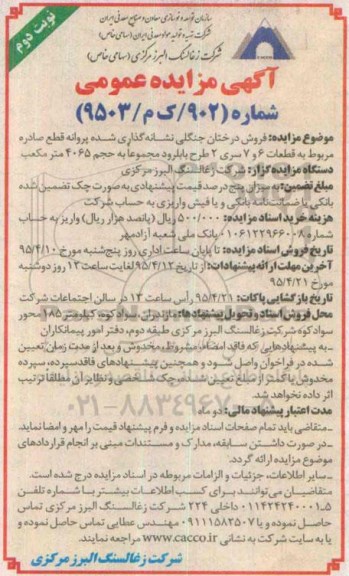 نوبت دوم
سازمان توسعه و نوسازی معادن و صنایع معدنی ایران
شرکت تهیه و تولید مواد معدنی ایران (سهامی خاص)
شرکت زغالسنگ البرز مرکزی (سهامی خاص)
آگهی مزایده عمومی
شماره (۹۰۲/ک م/۹۵۰۳)
موضوع مزایده: فروش درختان جنگلی نشانه گذاری شده پروانه قطع صادره
مربوط به قطعات ۶ و ۷ سری ۲ طرح بابلرود مجموعاً به حجم ۴۰۶۵ متر مکعب
دستگاه مزایده گزار: شرکت زغالسنگ البرز مرکزی
مبلغ تضمین: به میزان پنج درصد قیمت پیشنهادی به صورت چک تضمین شده
بانکی یا ضمانتنامه بانکی و یا فیش واریزی به حساب شرکت
هزینه خرید اسناد مزایده: ۵۰۰/۰۰۰ ریال (پانصد هزار ریال) واریز به حساب
شماره ۰۱۰۶۱۲۲۹۶۶۰۰۸ بانک ملی شعبه آزادمهر
تاریخ فروش اسناد مزایده: تا پایان ساعت اداری روز پنج‌شنبه مورخ ۹۵/۴/۱۰
آخرین مهلت ارائه پیشنهادات: از تاریخ ۹۵/۴/۱۲ لغایت ساعت ۱۳ روز دوشنبه
مورخ ۹۵/۴/۲۱
تاریخ بازگشایی پاکات: ۹۵/۴/۲۱ رأس ساعت ۱۳ در سالن اجتماعات شرکت
محل فروش اسناد و تحویل پیشنهادها: مازندران سوادکوه کیلومتر ۱۸۵ محور
سوادکوه شرکت زغالسنگ البرز مرکزی طبقه دوم، دفتر امور پیمانکاران
ـ به پیشنهادهایی که فاقد امضاء، مشروط، مخدوش و بعد از مدت زمان تعیین
شده در فراخوان واصل شود و همچنین پیشنهادهای فاقد سپرده، سپرده
مخدوش یا کمتر از مبلغ تعیین شده، چک شخصی و نظایر آن مطلقاً ترتیب
اثر داده نخواهد شد.
مدت اعتبار پیشنهاد مالی: دو ماه
ـ متقاضی باید تمام صفحات اسناد مزایده و فرم پیشنهاد قیمت را مهر و امضا نماید.
ـ در صورت داشتن سابقه، مدارک و مستندات مبنی بر انجام قراردادهای
موضوع مزایده ارائه گردد.
ـ سایر اطلاعات، جزئیات و الزامات مربوطه در اسناد مزایده درج شده است.
متقاضیان می‌توانند برای کسب اطلاعات بیشتر با شماره تلفن
۰۱۱۴۲۴۲۴۰۰۰۱-۵ داخلی ۲۲۴ شرکت زغالسنگ البرز مرکزی تماس
حاصل نموده و یا ۰۹۱۱۱۵۸۲۵۰۷ مهندس عطایی تماس حاصل نموده و
یا به سایت شرکت به نشانی www.cacco.ir مراجعه نمایند.
شرکت زغالسنگ البرز مرکزی